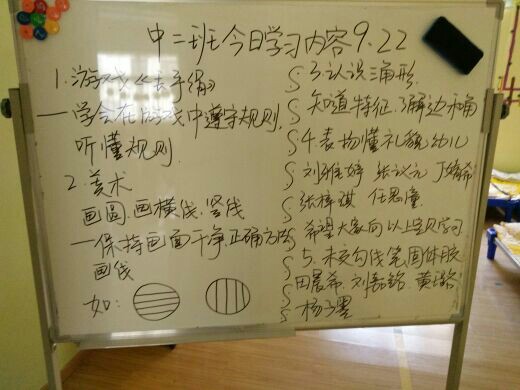 中二班今日学习内容9.22
1.游戏《丢手绢》
一学会在游戏中遵守规则,
听懂规则.
2.美术
画圆.画横线.竖线
一保持画面干净.正确方法
画线
如:
3.认识三角形.
知道特征.了解边和角
4.表扬懂礼貌幼儿
刘雅婷 张议元 丁
张梓琪 任思潼.
希望大家向以上宝贝学习
5.未交勾线笔.固体胶
田晨希.刘 铭.黄
杨子墨